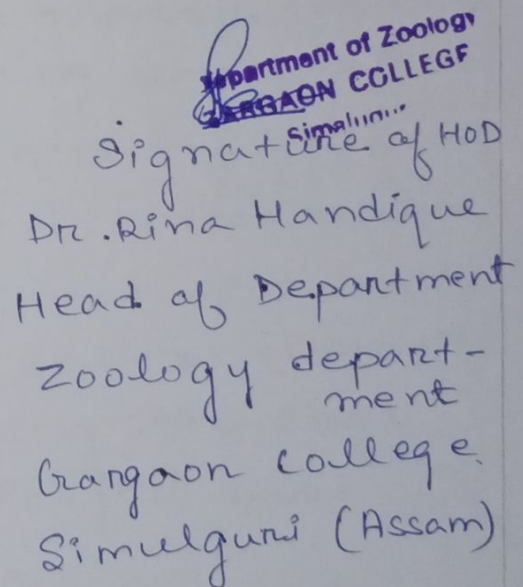 Department of Zoology
GARGAON COLLEGE
Signature of HOD
Dr. Rina Handique
Head of Department
Zoology depart-
ment
Gargaon college.
Simulguri (Assam)